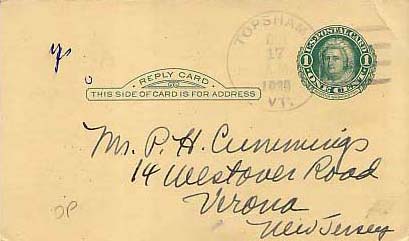 TOPSHAM
17
VT.
U.S. POSTAL CARD
1 1
ONE CENT
REPLY CARD
THIS SIDE OF CARD IS FOR ADDRESS
Mr. P. H. Cummings
14 Westover Road
Verona
New Jersey